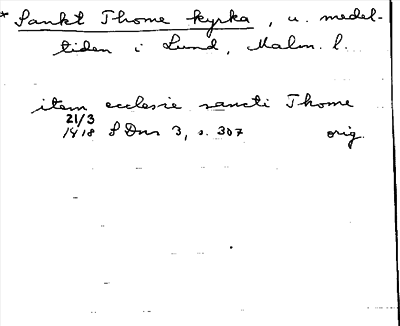 * Sankt Thome kyrka, u. medel-
tiden i Lund, Malm. l.
item ecclesie sancti Thome
21/3
1418 SDns 3, s. 307 orig.